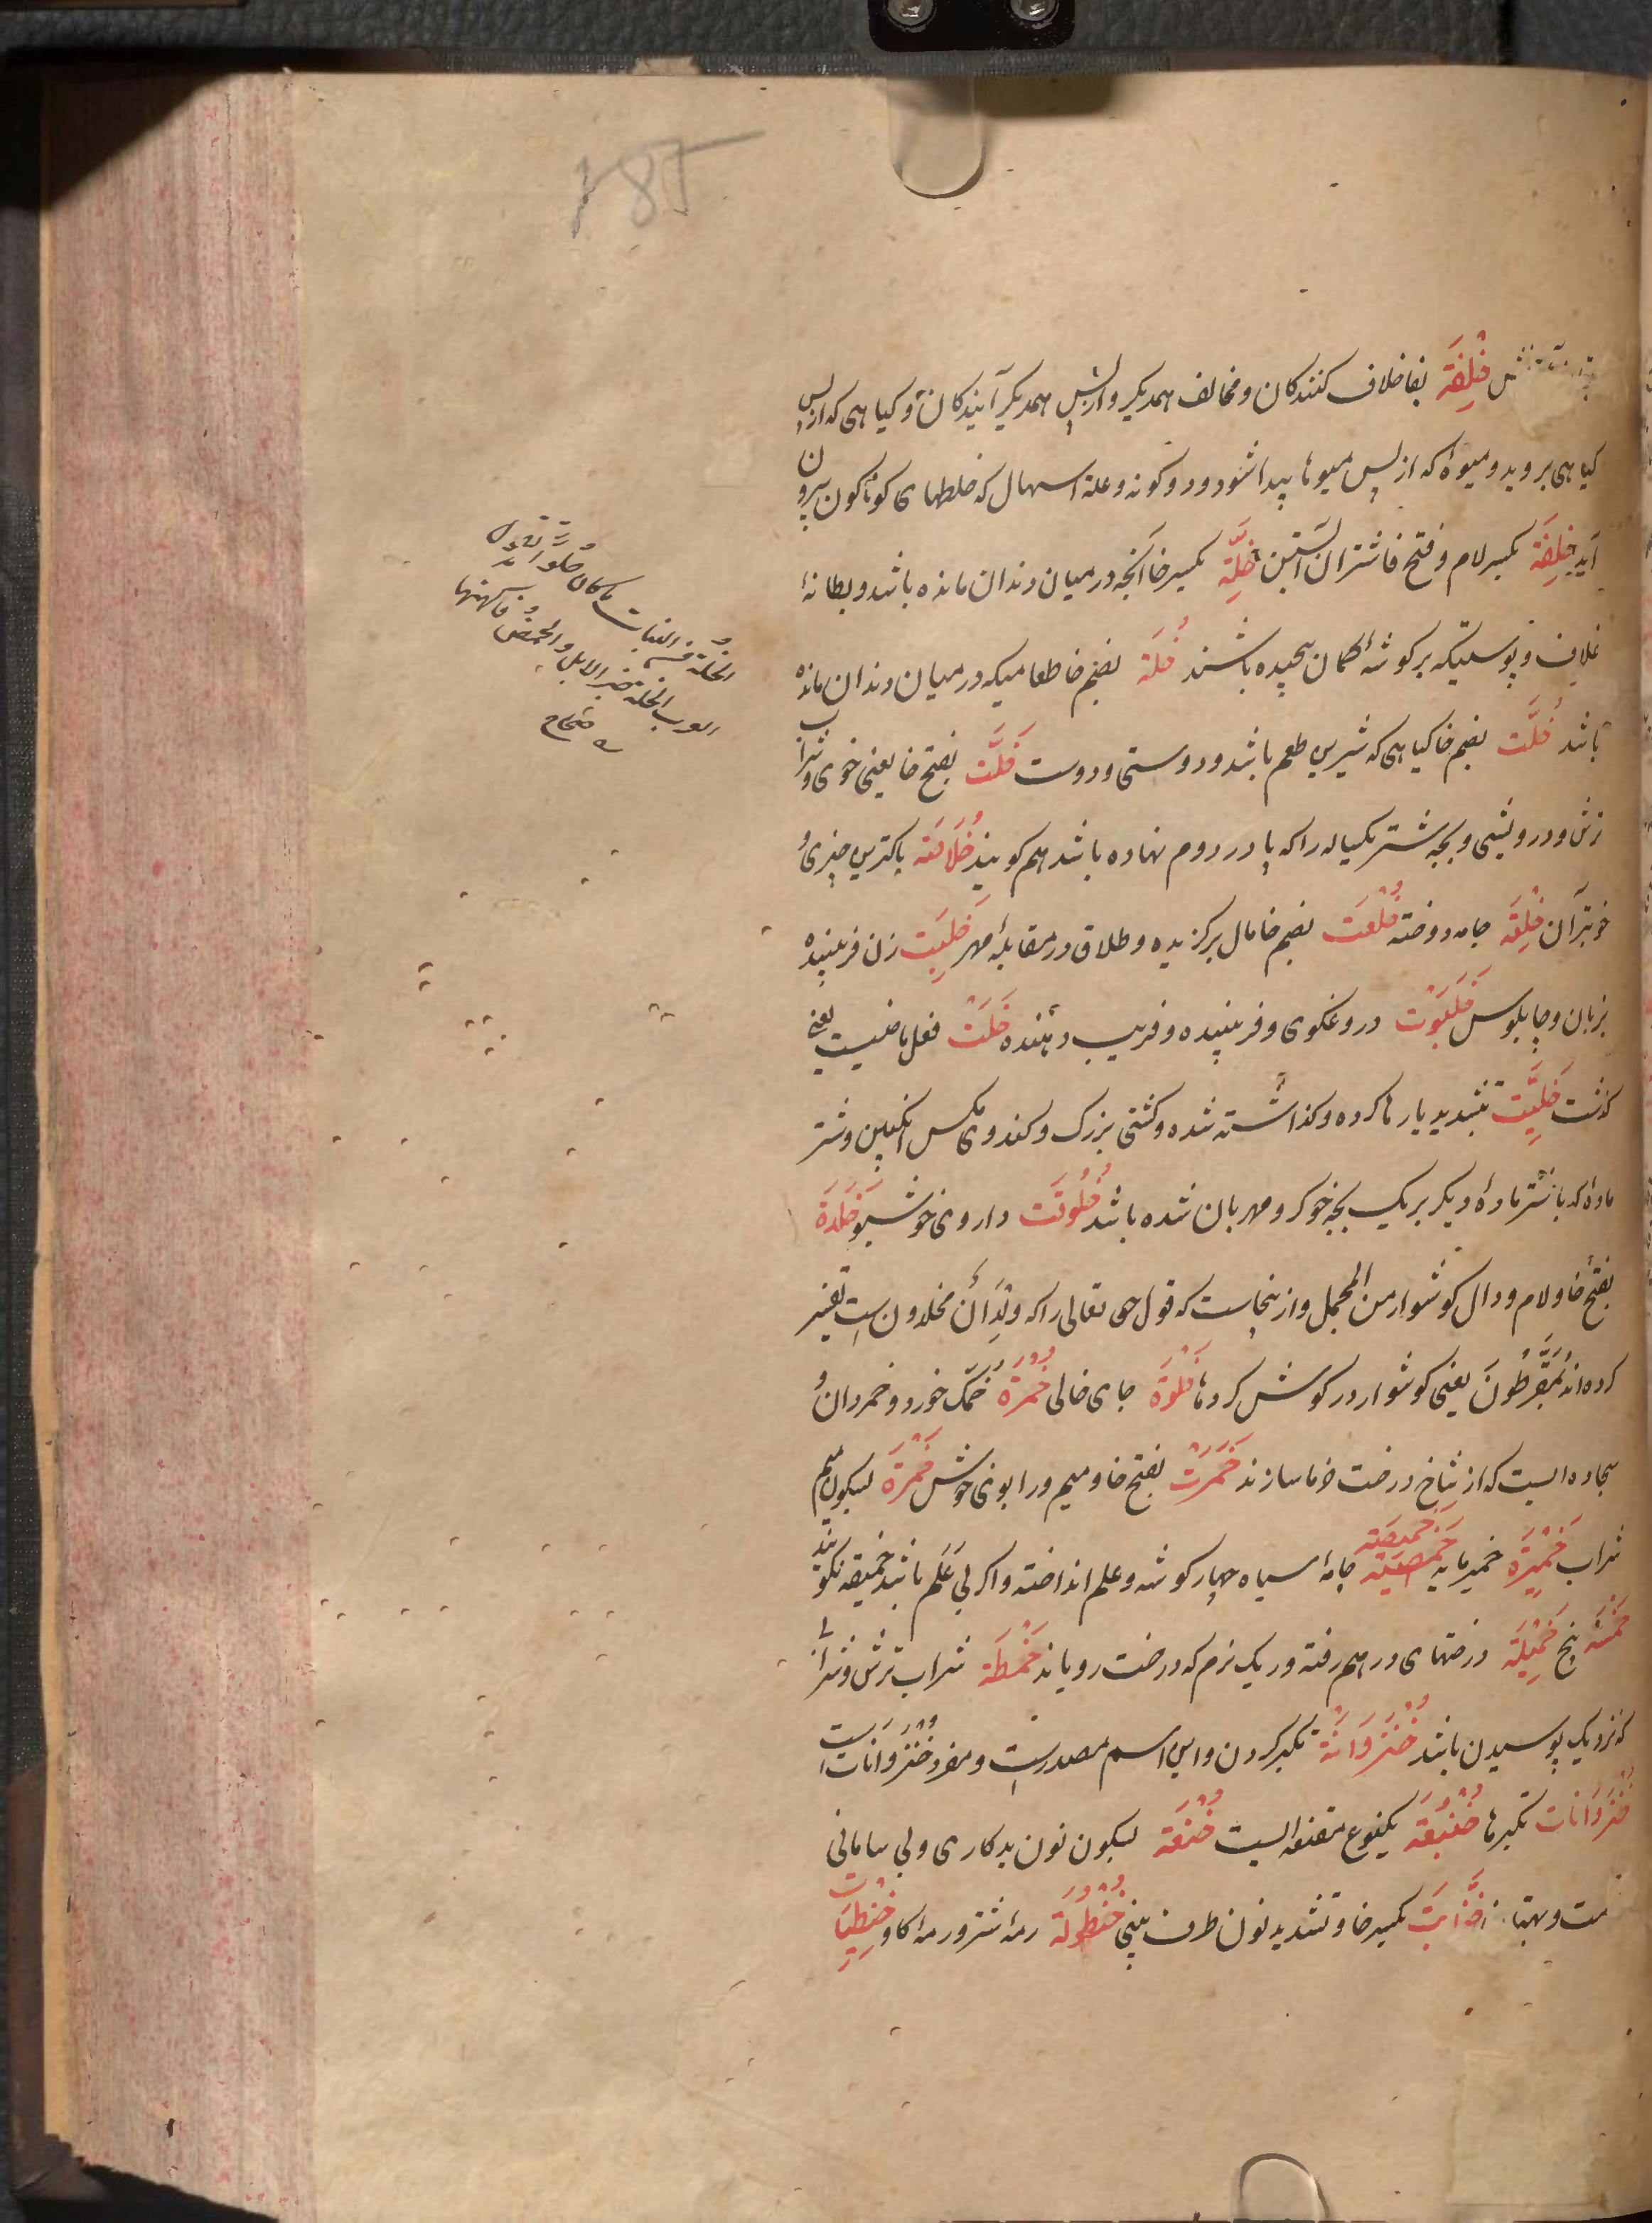 خِلْفَة بفا خلاف کنندکان و مخالف همدیکر و از پس همدیکر آیندکان و کیاهی که از پس
کیاهی بروید و میوهٔ که از پس میوها پیدا شود و دو کونه و علة اسهال که خلطهای کوناکون بیرون
آید خَلِفَة بکسر لام و فتح فا شتران آبستن خِلَّة بکسر خا آنچه در میان دندان مانده باشد و بطانهٔ
غلاف و پوستیکه بر کوشهٔ کمان پیچیده باشند خُلَة بضم خا طعامیکه در میان دندان مانده
باشد خُلَّت بضم خا کیاهی که شیرین طعم باشد و دوستی و دوست خَلَّت بفتح خا یعنی خوی و شراب
ترش و درویشی و بچه شتر یکساله را که پا در دوم نهاده باشد هم کویند خُلَاصَة پاکترین چیزی و
خوبتر آن خِلْقَة جامه دوخته خُلْعَت بضم خا مال برکزیده و طلاق در مقابلهٔ مهر خَلِیَبت زن فریبنده
بزبان و چاپلوس خَلَبُوت دروغکوی و فریبنده و فریب دهنده خَلَتْ فعل ماضیست یعنی
کذشت خَلِیَّت بتشدید یا رها کرده و کذاشته شده و کشتی بزرک و کندوی مکس انکبین و شتر
مادهٔ که با شتر مادهٔ دیکر بر یک بچه خوکر و مهربان شده باشد خُلُوقَت داروی خوشبو خَلَدَة
بفتح خا و لام و دال کوشوار من المجمل و ازینجاست که قول حق تعالی را که وِلْدَانٌ مخلدون است تفسیر
کرده‌اند مُقَرَّطُونَ یعنی کوشوار در کوش کردها خَلْوَة جای خالی خُمْرَة خمک خورد و خمردان و
سجاده ایست که از شاخ درخت خرما سازند خَمَرَتْ بفتح خا و میم و را بوی خوش خَمْرَة بسکون میم
شراب خَمِیْرَة خمیر مایه خَمِیصَة جامهٔ سیاه چهار کوشه و علم انداخته و اکر بی عَلَم باشد خمیصه نکویند
خَمْسَة پنج خَمِیْلَة درختهای در هم رفته و ریک نرم که درخت رویاند خَمْطَة شراب ترش و شرابی
که نزدیک پوسیدن باشد خُنْزُوَانَة تکبر کردن و این اسم مصدرست و مفرد خُنْزُوَانات است
خُنْزُوَانات تکبرها خُنْبُعَة یکنوع مقنعه ایست خُنْعَة بسکون نون بدکاری و بی سامانی
خِنَّابَت بکسر خا و تشدید نون طرف بینی خُنْطُولَة رمهٔ شتر و رمهٔ کاو
الخلة من النبات ما کان حلوًا تقول
العرب الخلة خبز الابل والحمض فاکهتها
صحاح